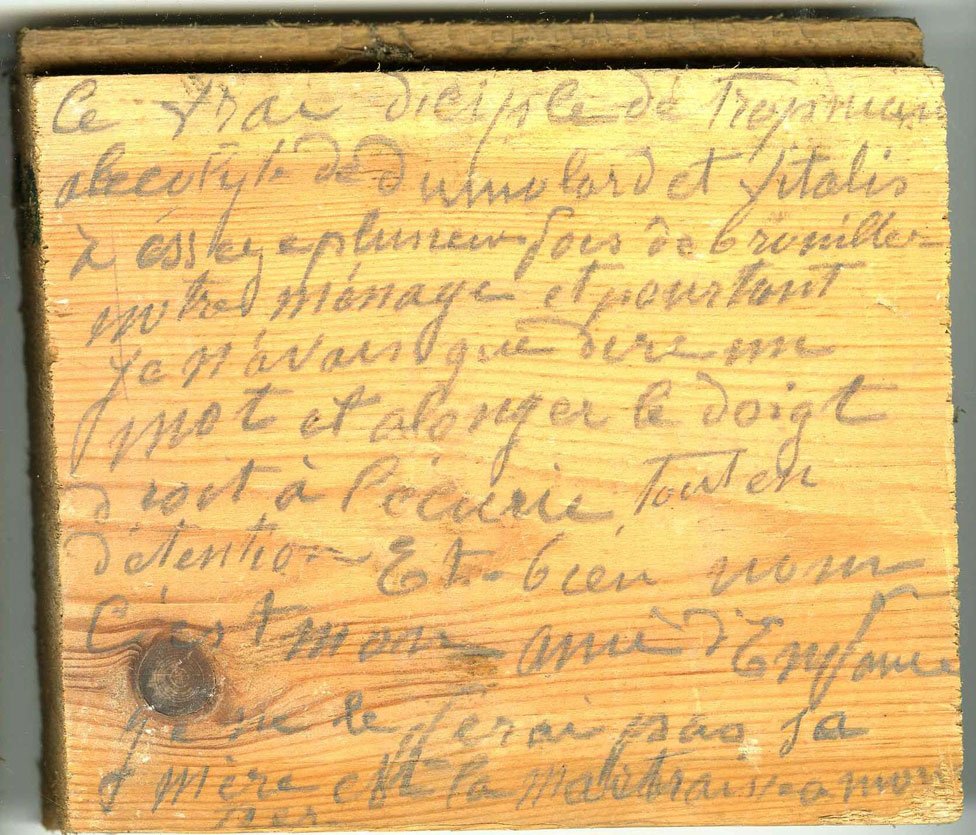 Ce vrai diciple de Tropmann
alecotyte de Dumolard et Vitalis
à ésseye plusieur fois de brouiller
notre ménage et pourtant
je n'avais que dire un
mot et alonger le doigt
droit à l'écurie tout en
détention Et bien nom
C'est mon ami d'Enfance
je ne le ferai pas sa
mère est la maitraisse a mon
per